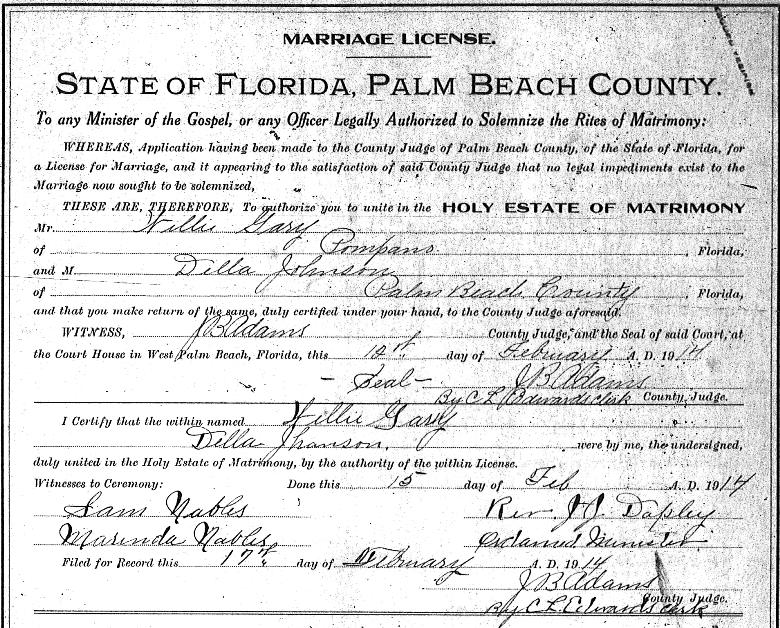 MARRIAGE LICENSE.
STATE OF FLORIDA, PALM BEACH COUNTY.
To any Minister of the Gospel, or any Officer Legally Authorized to Solemnize the Rites of Matrimony:
WHEREAS, Application having been made to the County Judge of Palm Beach County, of the State of Florida, for
a License for Marriage, and it appearing to the satisfaction of said County Judge that no legal impediments exist to the
Marriage now sought to be solemnized,
THESE ARE, THEREFORE, To authorize you to unite in the HOLY ESTATE OF MATRIMONY
Mr. Willie Gary
of Pompano, Florida,
and M Della Johnson
of Palm Beach County, Florida,
and that you make return of the same, duly certified under your hand, to the County Judge aforesaid.
WITNESS, J B Adams County Judge, and the Seal of said Court, at
the Court House in West Palm Beach, Florida, this day of February A. D. 1914
- Seal - J B Adams
By C L Edwards clerk County Judge.
I Certify that the within named Willie Gary
Della were by me, the undersigned,
duly united in the Holy Estate of Matrimony, by the authority of the within License.
Witnesses to Ceremony: Done this 15 day of Feb A. D. 1914
Sam Nables Rev J. J.
Marinda Nables Minister
Filed for Record this 17th day of February A. D. 1914
J B Adams
County Judge.
By C L Edwards clerk